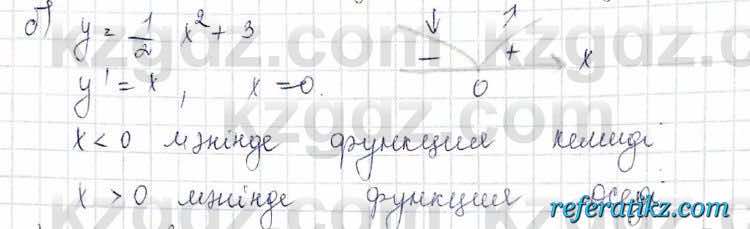 б) y = 1/2 x² + 3
↓ ↑
− + x
0
y' = x, x = 0.
x < 0 мәнінде функция кемиді
x > 0 мәнінде функция өседі
kzgdz.com
referatikz.com